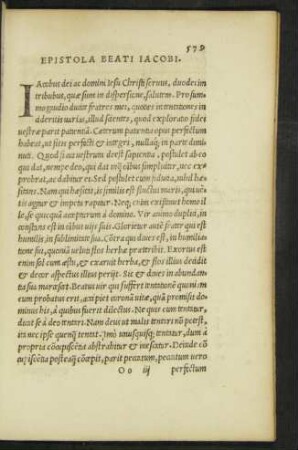 579
EPISTOLA BEATI IACOBI.
IAcobus dei ac domini Iesu Christi seruus, duodecim
tribubus, quæ sunt in dispersione, salutem. Pro sum
mo gaudio ducite fratres mei, quoties in tentationes in
cideritis uarias, illud scientes, quod exploratio fidei
uestræ parit patientiã. Cæterum patientia opus perfectum
habeat, ut sitis perfecti & integri, nullaq; in parte dimi
nuti. Quod si cui uestrum deest sapientia, postulet ab eo
qui dat, nempe deo, qui dat inq̃ oibus simpliciter, nec ex
probrat, ac dabitur ei. Sed postulet cum fiducia, nihil hæ
sitans. Nam qui hæsitat, is similis est fluctui maris, qui uẽ
tis agitur & impetu rapitur. Neq; enim existimet homo il
le, se quicquã accepturum à domino. Vir animo duplici, in
constans est in oibus uijs suis. Glorietur autẽ frater qui est
humilis, in sublimitate sua. Cõtra qui diues est, in humilita
tione sui, quoniã uelut flos herbæ præteribit. Exortus est
enim sol cum æstu, & exaruit herba, & flos illius decidit
& decor aspectus illius perijt. Sic & diues in abundan
tia sua marcescet. Beatus uir qui suffert tentationẽ quoniam
cum probatus erit, accipiet coronã uitæ, quã promisit do
minus his, à quibus fuerit dilectus. Ne quis cum tentatur,
dicat se à deo tentari. Nam deus ut malis tentari nõ potest,
ita nec ipse quenq̃ tentat. Imò unusquisq; tentatur, dum à
propria cõcupiscẽtia abstrahitur & inescatur. Deinde cõ
cupiscẽtia posteaq̃ cõcepit, parit peccatum, peccatum uero
Oo iij perfectum